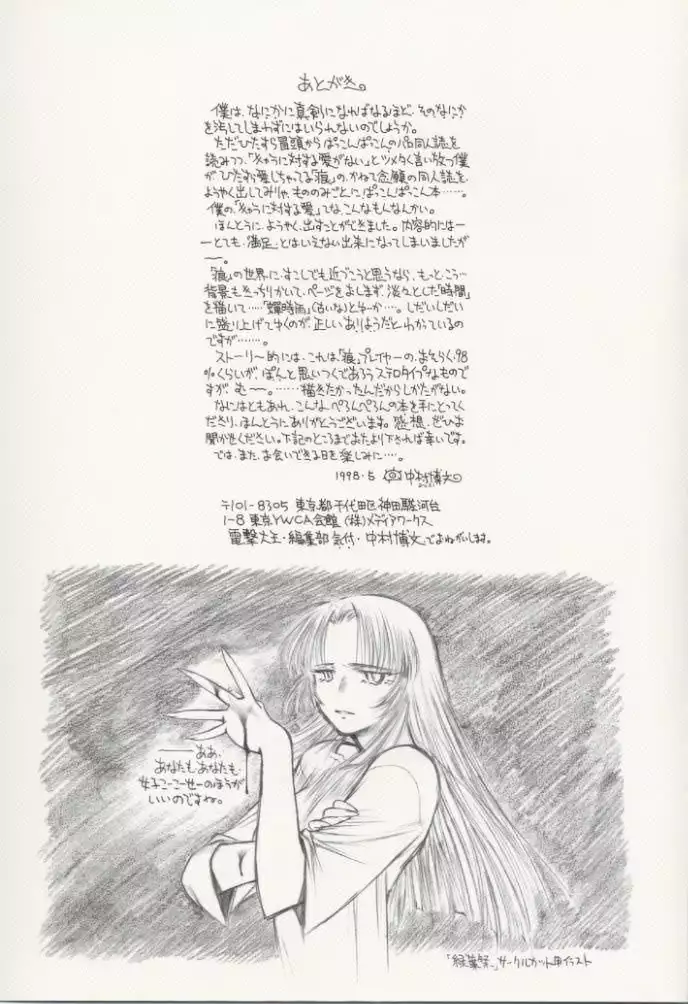 あとがき。
僕は、なにかに真剣になればなるほど、そのなにか
を汚してしまわずにはいられないのでしょうか。
ただひたすら冒頭からぱっこんぱっこんのパロ同人誌を
読みつつ、「きゃらに対する愛がない」とツメタく言い放つ僕
が、ひたすら愛しちゃってる「痕」の、かねて念願の同人誌を、
ようやく出してみりゃ、もののみごとに、ぱっこんぱっこん本……。
僕の、「きゃらに対する愛」てな、こんなもんなんかい。
ほんとうに、ようやく、出すことができました。内容的には―
―とても、「満足」とはいえない出来になってしまいましたが
――。
「痕」の世界に、すこしでも近づこうと思うなら、もっと、こう…
背景もきっちりかいて、ページをおしまず、淡々とした「時間」
を描いて……「蝉時雨」(古いな)とゆーか…。しだいしだい
に盛り上げてゆくのが、正しいありようだと、わかっているの
ですが……。
ストーリー的には、これは、「痕」プレイヤーの、おそらく、98
%くらいが、ぽんと思いつくであろうステロタイプなもので
すが、む――。……描きたかったんだからしかたがない。
なにはともあれ、こんな、ぺろんぺろんの本を手にとってく
ださり、ほんとうにありがとうございます。感想、ぜひお
聞かせください。下記のところまでおたより下されば幸いです。
では、また、お会いできる日を楽しみに…。
1998.5 中村博文
〒101-8305 東京都千代田区神田駿河台
1-8 東京YWCA会館 (株)メディアワークス
電撃大王・編集部気付・中村博文でおねがいします。
――ああ、
あなたも、あなたも、
女子こーこーせーのほうが
いいのですね。
「緑葉祭」サークルカット用イラスト